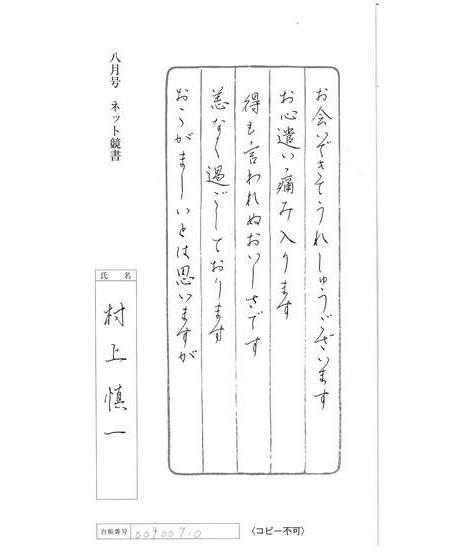 お会いできてうれしゅうございます
お心遣い痛み入ります
得も言われぬおいしさです
恙なく過ごしております
おこがましいとは思いますが
八月号 ネット競書
氏名
村上慎一
台帳番号 0090070
〈コピー不可〉